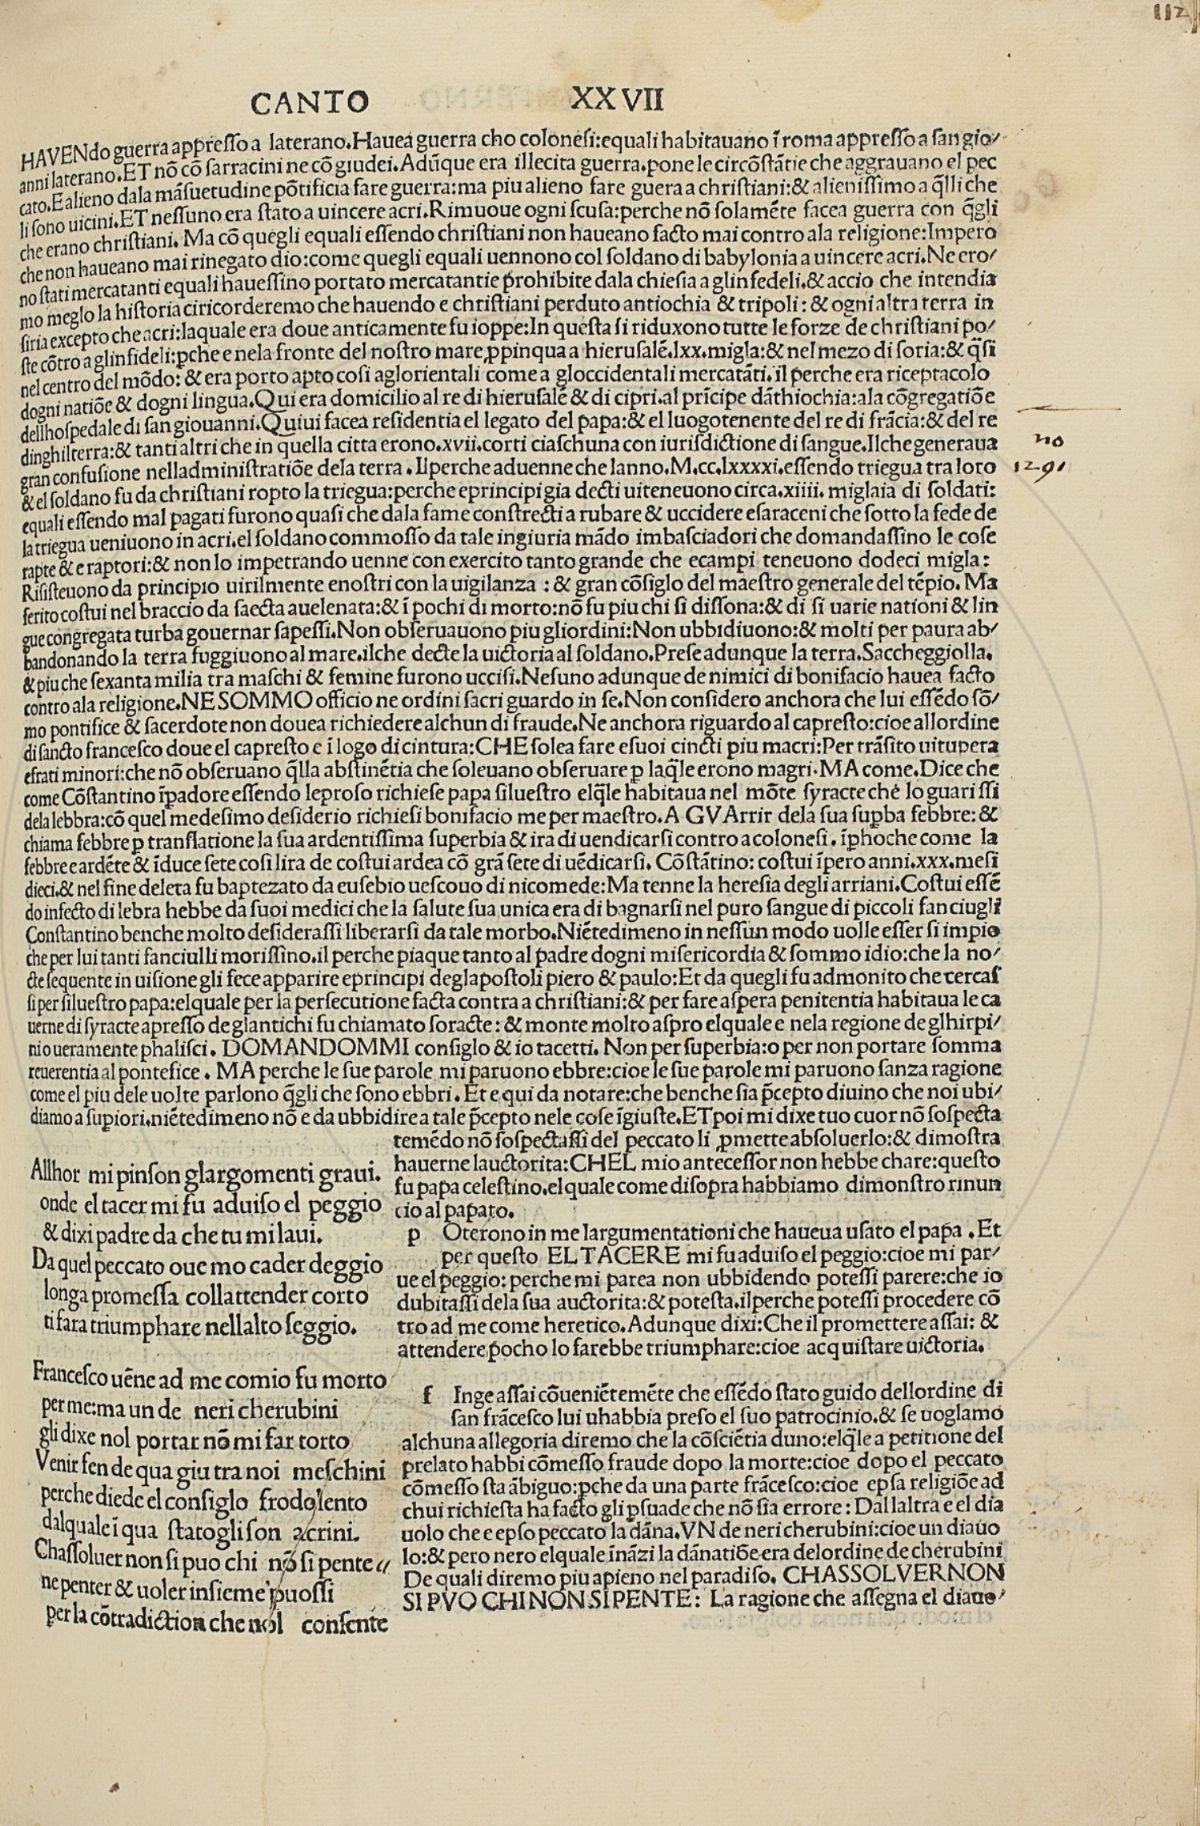 112
CANTO XXVII
HAVENdo guerra appreſſo a laterano.Hauea guerra cho coloneſi:equali habitauano ĩ roma appreſſo a ſan gio/
anni laterano.ET nõ cõ ſarracini ne cõ giudei.Adũque era illecita guerra.pone le circõſtãtie che aggrauano el pec
cato.E alieno dala mãſuetudine põtificia fare guerra:ma piu alieno fare guera a chriſtiani:& alieniſſimo a q̃lli che
li ſono uicini.ET neſſuno era ſtato a uincere acri.Rimuoue ogni ſcuſa:perche nõ ſolamẽte facea guerra con q̃gli
che erano chriſtiani. Ma cõ quegli equali eſſendo chriſtiani non haueano facto mai contro ala religione:Impero
che non haueano mai rinegato dio:come quegli equali uennono col ſoldano di babylonia a uincere acri.Ne ero/
no ſtati mercatanti equali haueſſino portato mercatantie ꝓhibite dala chieſia a glinfedeli.& accio che intendia
mo meglo la hiſtoria ciricorderemo che hauendo e chriſtiani perduto antiochia & tripoli: & ogni altra terra in
ſiria excepto che acri:laquale era doue anticamente fu ioppe:In queſta ſi riduxono tutte le forze de chriſtiani po/
ſte cõtro a glinfideli:ꝑche e nela fronte del noſtro mare ꝓpinqua a hieruſalẽ.lxx.migla:& nel mezo di ſoria:& q̃ſi
nel centro del mõdo: & era porto apto coſi aglorientali come a gloccidentali mercatãti.il perche era riceptacolo
dogni natiõe & dogni lingua.Qui era domicilio al re di hieruſalẽ & di cipri.al prĩcipe dãthiochia:ala cõgregatiõe
dellhoſpedale di ſan giouanni.Quiui facea reſidentia el legato del papa:& el luogotenente del re di frãcia:& del re
dinghilterra:& tanti altri che in quella citta erono.xvii.corti ciaſchuna con iuriſdictione di ſangue.Ilche generaua
gran confuſione nelladminiſtratiõe dela terra. Ilperche aduenne che lanno.M.cc.lxxxxi.eſſendo triegua tra loro
& el ſoldano fu da chriſtiani ropto la triegua:perche eprincipi gia decti uiteneuono circa.xiiii. miglaia di ſoldati:
equali eſſendo mal pagati furono quaſi che dala fame conſtrecti a rubare & uccidere eſaraceni che ſotto la fede de
la triegua ueniuono in acri.el ſoldano commoſſo da tale ingiuria mãdo imbaſciadori che domandaſſino le coſe
rapte & e raptori:& non lo impetrando uenne con exercito tanto grande che ecampi teneuono dodeci migla:
Riſiſteuono da principio uirilmente enoſtri con la uigilanza : & gran cõſiglo del maeſtro generale del tẽpio. Ma
ferito coſtui nel braccio da ſaecta auelenata:& ĩ pochi di morto:nõ fu piu chi ſi diſſona:& di ſi uarie nationi & lin
gue congregata turba gouernar ſapeſſi.Non obſeruauono piu gliordini:Non ubbidiuono:& molti per paura ab/
bandonando la terra fuggiuono al mare.ilche decte la uictoria al ſoldano.Preſe adunque la terra.Saccheggiolla.
& piu che ſexanta milia tra maſchi & femine furono ucciſi. Neſuno adunque de nimici di bonifacio hauea facto
contro ala religione.NE SOMMO officio ne ordini ſacri guardo in ſe.Non conſidero anchora che lui eſſẽdo ſõ/
mo pontifice & ſacerdote non douea richiedere alchun di fraude.Ne anchora riguardo al capreſto:cioe allordine
di ſancto franceſco doue el capreſto e ĩ logo di cintura:CHE ſolea fare eſuoi cincti piu macri:Per trãſito uitupera
efrati minori:che nõ obſeruano q̃lla abſtinẽtia che ſoleuano obſeruare ꝑ laq̃le erono magri.MA come.Dice che
come Cõſtantino ĩpadore eſſendo leproſo richieſe papa ſilueſtro elq̃le habitaua nel mõte ſyracte che lo guariſſi
dela lebbra:cõ quel medeſimo deſiderio richieſi bonifacio me per maeſtro.A GVArrir dela ſua ſupba febbre:&
chiama febbre ꝑ tranſlatione la ſua ardentiſſima ſuperbia & ira di uendicarſi contro a coloneſi. ĩphoche come la
febbre e ardẽte & ĩduce ſete coſi lira de coſtui ardea cõ grã ſete di uẽdicarſi. Cõſtãtino: coſtui ĩpero anni.xxx.meſi
dieci.& nel fine deleta fu baptezato da euſebio ueſcouo di nicomede:Ma tenne la hereſia degli arriani.Coſtui eſſẽ
do infecto di lebra hebbe da ſuoi medici che la ſalute ſua unica era di bagnarſi nel puro ſangue di piccoli fanciugli
Conſtantino benche molto deſideraſſi liberarſi da tale morbo.Niẽtedimeno in neſſun modo uolle eſſer ſi impio
che per lui tanti fanciulli moriſſino.il perche piaque tanto al padre dogni miſericordia & ſommo idio:che la no/
cte ſequente in uiſione gli fece apparire eprincipi deglapoſtoli piero & paulo:Et da quegli fu admonito che cercaſ
ſi per ſilueſtro papa:elquale per la perſecutione facta contra a chriſtiani:& per fare aſpera penitentia habitaua le ca
uerne di ſyracte apreſſo de glantichi fu chiamato ſoracte: & monte molto aſpro elquale e nela regione de glhirpi/
ni o ueramente phaliſci. DOMANDOMMI conſiglo & io tacetti. Non per ſuperbia:o per non portare ſomma
reuerentia al pontefice. MA perche le ſue parole mi paruono ebbre:cioe le ſue parole mi paruono ſanza ragione
come el piu dele uolte parlono q̃gli che ſono ebbri. Et e qui da notare:che benche ſia p̃cepto diuino che noi ubi/
diamo a ſupiori.niẽtedimeno nõ e da ubbidire a tale p̃cepto nele coſe ĩgiuſte.ET poi mi dixe tuo cuor nõ ſoſpecta
temẽdo nõ ſoſpectaſſi del peccato li ꝓmette abſoluerlo:& dimoſtra
hauerne lauctorita:CHEL mio anteceſſor non hebbe chare:queſto
fu papa celeſtino.el quale come diſopra habbiamo dimonſtro rinun
cio al papato.
p Oterono in me largumentationi che haueua uſato el papa .Et
per queſto EL TACERE mi fu aduiſo el peggio:cioe mi par/
ue el peggio: perche mi parea non ubbidendo poteſſi parere:che io
dubitaſſi dela ſua auctorita:& poteſta.ilperche poteſſi procedere cõ
tro ad me come heretico.Adunque dixi:Che il promettere aſſai: &
attendere pocho lo farebbe triumphare:cioe acquiſtare uictoria.
f Inge aſſai cõueniẽtemẽte che eſſẽdo ſtato guido dellordine di
ſan frãceſco lui uhabbia preſo el ſuo patrocinio.& ſe uoglamo
alchuna allegoria diremo che la cõſciẽtia duno:elq̃le a petitione del
prelato habbi cõmeſſo fraude dopo la morte:cioe dopo el peccato
cõmeſſo ſta ãbiguo:ꝑche da una parte frãceſco:cioe epſa religiõe ad
chui richieſta ha facto gli ꝑſuade che nõ ſia errore: Dallaltra e el dia
uolo che e epſo peccato la dãna.VN de neri cherubini:cioe un diauo
lo:& pero nero elquale ĩnãzi la dãnatiõe era delordine de cherubini
De quali diremo piu apieno nel paradiſo. CHASSOLVER NON
SI PVO CHI NON SI PENTE: La ragione che aſſegna el diauo/
Allhor mi pinſon glargomenti graui.
onde el tacer mi fu aduiſo el peggio
& dixi padre da che tu mi laui.
Da quel peccato oue mo cader deggio
longa promeſſa collattender corto
ti fara triumphare nellalto ſeggio.
Franceſco uẽne ad me comio fu morto
per me:ma un de neri cherubini
gli dixe nol portar nõ mi far torto
Venir ſen de qua giu tra noi meſchini
perche diede el conſiglo frodolento
dalquale ĩ qua ſtato gli ſon a crini.
Chaſſoluer non ſi puo chi nõ ſi pente
ne penter & uoler inſieme puoſſi
per la cõtradiction che nol conſente
no
1291